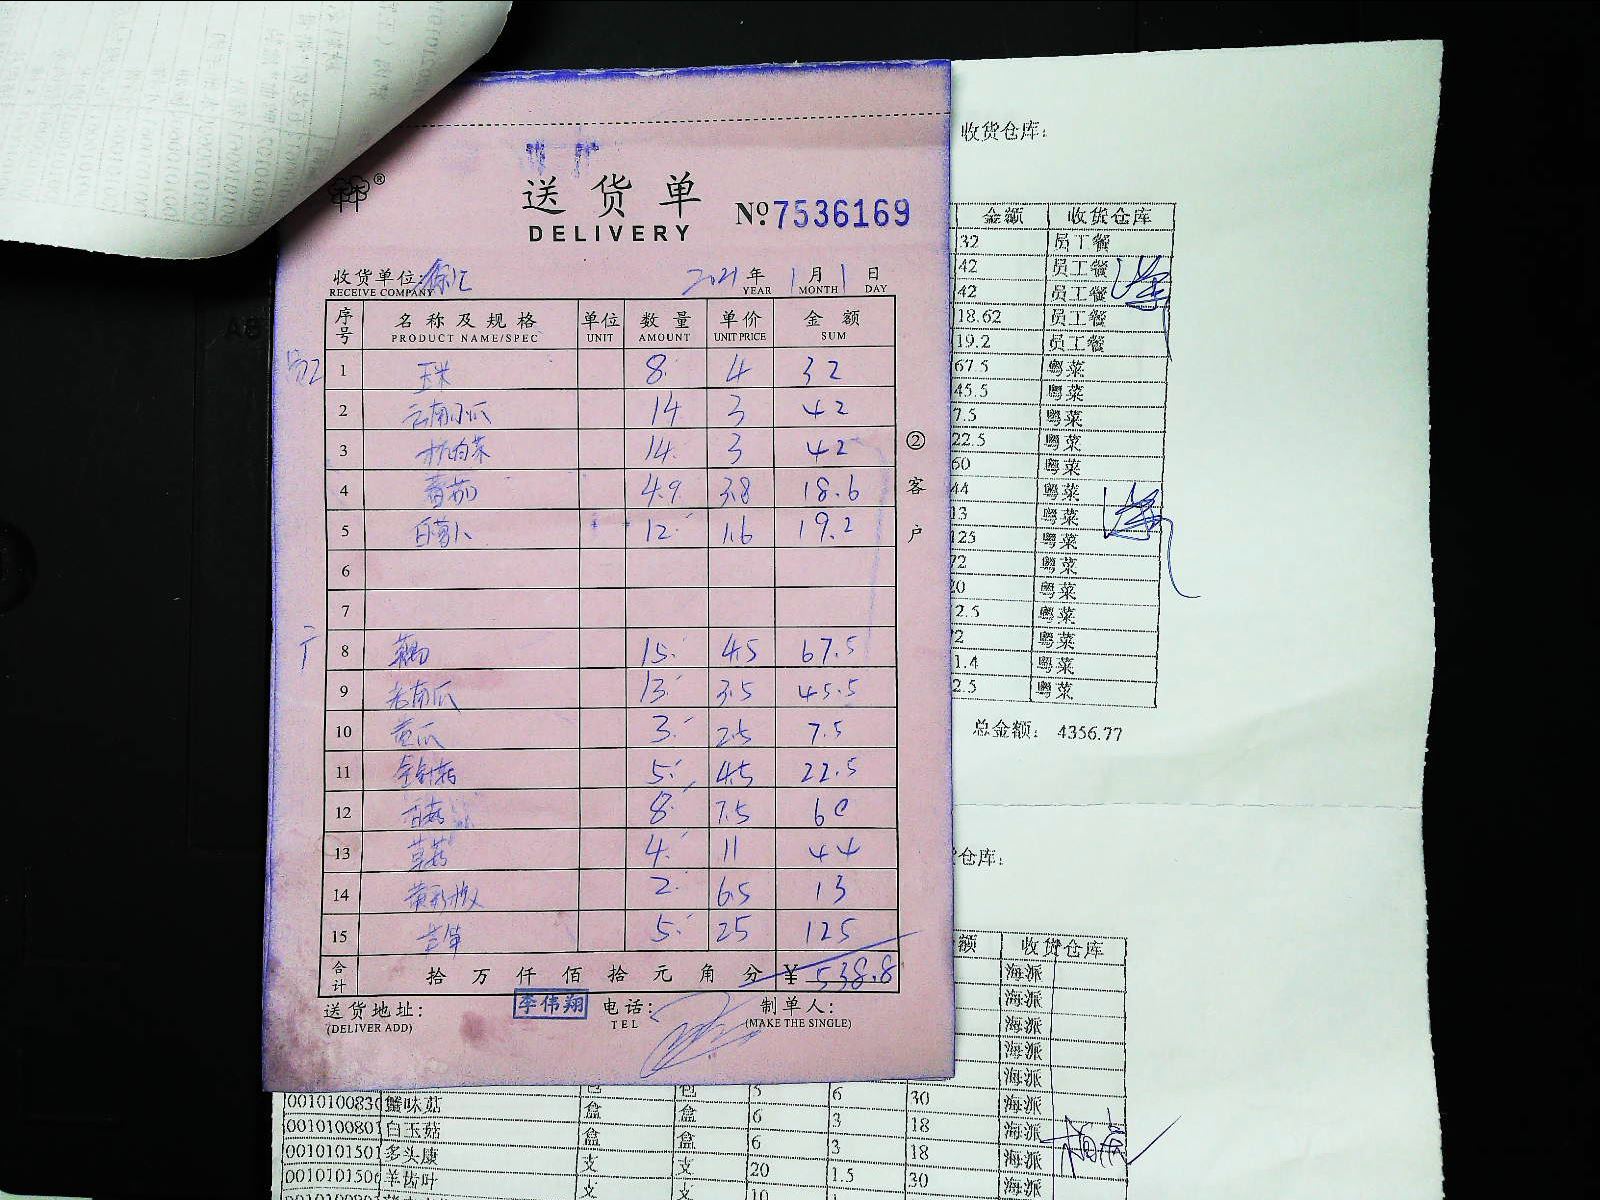 送货单 №7536169
DELIVERY
收货单位: 徐汇 2021年1月1日
RECEIVE COMPANY YEAR MONTH DAY
序号 名称及规格 单位 数量 单价 金额
PRODUCT NAME/SPEC UNIT AMOUNT UNIT PRICE SUM
员工 1 玉米 8 4 32
2 云南小瓜 14 3 42
3 杭白菜 14 3 42
4 番茄 4.9 3.8 18.6
5 白萝卜 12 1.6 19.2
6
7
8 藕 15 4.5 67.5
9 老南瓜 13 3.5 45.5
10 黄瓜 3 2.5 7.5
11 金针菇 5 4.5 22.5
12 7.5 60
13 草菇 4 11 44
14 黄彩椒 2 6.5 13
15 5 25 125
合计 拾万仟佰拾元角分 ¥ 538.8
送货地址: 李伟翔 电话: 制单人:
(DELIVER ADD) TEL (MAKE THE SINGLE)
②客户
收货仓库:
金额 收货仓库
32 员工餐
42 员工餐
42 员工餐
18.62 员工餐
19.2 员工餐
67.5 粤菜
45.5 粤菜
7.5 粤菜
22.5 粤菜
60 粤菜
44 粤菜
13 粤菜
125 粤菜
72 粤菜
20 粤菜
2.5 粤菜
2 粤菜
1.4 粤菜
2.5 粤菜
总金额: 4356.77
仓库:
额 收货仓库
海派
海派
海派
海派
海派
包 包 5 6 30 海派
001010083 蟹味菇 盒 盒 6 3 18 海派
001010080 白玉菇 盒 盒 6 3 18 海派
001010150 多头康 支 支 20 1.5 30 海派
001010150 羊齿叶 支 支 10